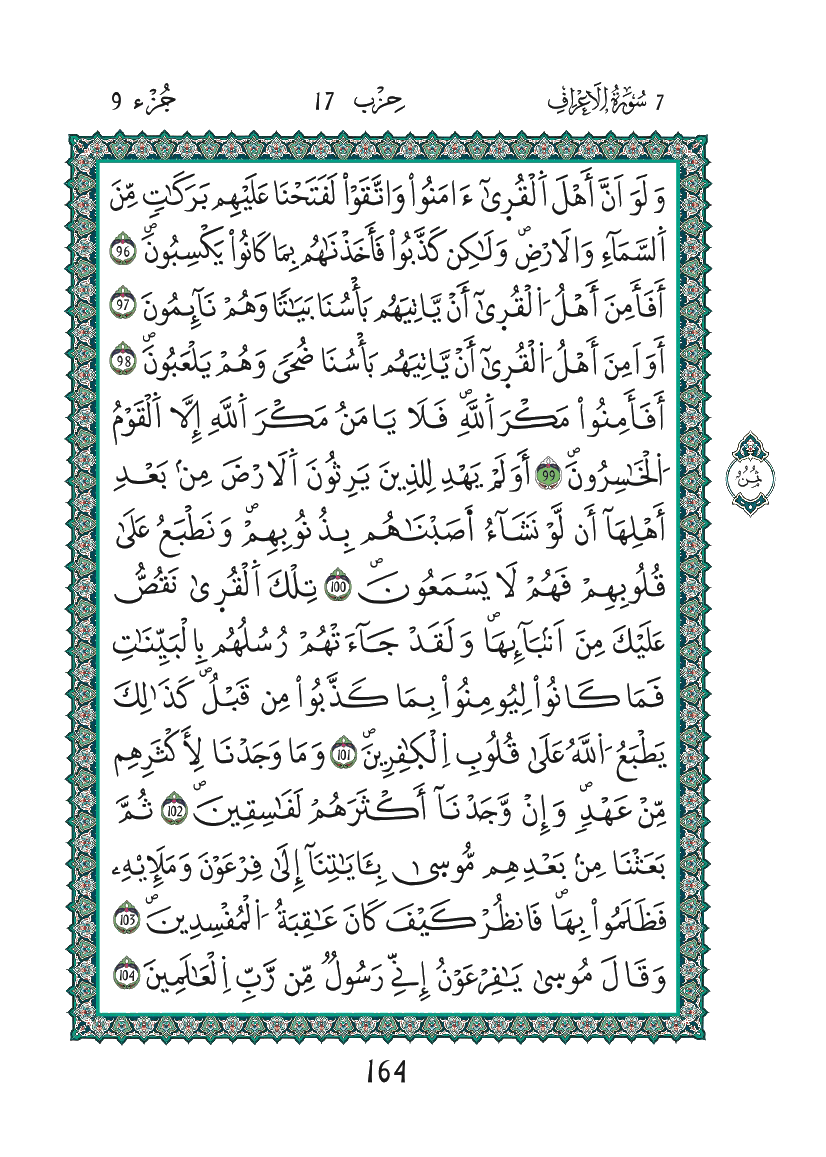 7 سُورَةُ الَاعْرَافِ حِزْب 17 جُزْء 9
وَلَوَ اَنَّ أَهْلَ اَلْقُر۪ىٰٓ ءَامَنُواْ وَاتَّقَوْاْ لَفَتَحْنَا عَلَيْهِم بَرَكَٰتٖ مِّنَ
اَلسَّمَآءِ وَالَارْضِۖ وَلَٰكِن كَذَّبُواْ فَأَخَذْنَٰهُم بِمَا كَانُواْ يَكْسِبُونَۖ 96
أَفَأَمِنَ أَهْلُ اُ۬لْقُر۪ىٰٓ أَنْ يَّاتِيَهُم بَأْسُنَا بَيَٰتاٗ وَهُمْ نَآئِمُونَ 97
أَوَ اَمِنَ أَهْلُ اُ۬لْقُر۪ىٰٓ أَنْ يَّاتِيَهُم بَأْسُنَا ضُحىٗ وَهُمْ يَلْعَبُونَۖ 98
أَفَأَمِنُواْ مَكْرَ اَللَّهِۖ فَلَا يَامَنُ مَكْرَ اَللَّهِ إِلَّا اَلْقَوْمُ
اُ۬لْخَٰسِرُونَۖ 99 أَوَلَمْ يَهْدِ لِلذِينَ يَرِثُونَ اَلَارْضَ مِنۢ بَعْدِ
أَهْلِهَآ أَن لَّوْ نَشَآءُ اَ۬صَبْنَٰهُم بِذُنُوبِهِمْۖ وَنَطْبَعُ عَلَىٰ
قُلُوبِهِمْ فَهُمْ لَا يَسْمَعُونَۖ 100 تِلْكَ اَلْقُر۪ىٰ نَقُصُّ
عَلَيْكَ مِنَ اَنۢبَآئِهَاۖ وَلَقَدْ جَآءَتْهُمْ رُسُلُهُم بِالْبَيِّنَٰتِ
فَمَا كَانُواْ لِيُومِنُواْ بِمَا كَذَّبُواْ مِن قَبْلُۖ كَذَٰلِكَ
يَطْبَعُ اُ۬للَّهُ عَلَىٰ قُلُوبِ اِ۬لْكٰ۪فِرِينَۖ 101 وَمَا وَجَدْنَا لِأَكْثَرِهِم
مِّنْ عَهْدٖۖ وَإِنْ وَّجَدْنَآ أَكْثَرَهُمْ لَفَٰسِقِينَۖ 102 ثُمَّ
بَعَثْنَا مِنۢ بَعْدِهِم مُّوس۪ىٰ بِـَٔايَٰتِنَآ إِلَىٰ فِرْعَوْنَ وَمَلَإِيْهِۦ
فَظَلَمُواْ بِهَاۖ فَانظُرْ كَيْفَ كَانَ عَٰقِبَةُ اُ۬لْمُفْسِدِينَۖ 103
وَقَالَ مُوس۪ىٰ يَٰفِرْعَوْنُ إِنِّے رَسُولٞ مِّن رَّبِّ اِ۬لْعَٰلَمِينَ 104
ثُمُنُ
164